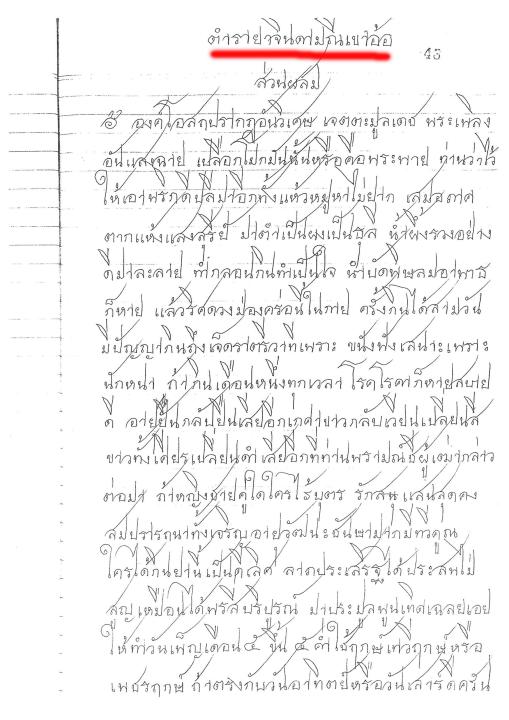 ตำรายาจินดามณีเขาอ้อ
45
ส่วนผสม
องค์โอสถปรากฏอันวิเศษ เจตตะมูลเตช พระเพลิง
อันแสงฉาย เปลือกโมกมันนั้นหรือคือพระพาย ท่านว่าไว้
ให้เอาพริกดีปลีมาอีกทั้งแห้วหมูหาไม่ยาก
ตากแห้งแสงสุริย์ มาตำเป็นผงเป็นธุลี น้ำผึ้งรวงอย่าง
ดีมาละลาย ทำกลอนกินทำเป็นใจ นำบัดพิษลมอาพาธ
ก็หาย แล้วริดดวงมองคร่อนี้ในกาย ครั้งกินได้สามวัน
มีปัญญากินถึงเจ็ดราตรีวาทีเพราะ ขนังฟังเสนาะเพราะ
นักหนา ถ้ากินเดือนหนึ่งทุกเวลา โรคโรคาก็หายสบาย
ดี อายุยืนกลับยืนเสียอีกเกศาขาวกลับเวียนเปลี่ยนสี
ขาวทั้งเศียรเปลี่ยนดำเสียอีกที่ท่านพราหมณ์ชีผู้เฒ่ากล่าว
ต่อมา ถ้าหญิงชายคู่ใดใคร่ได้บุตร รักสนุกแสนสุดคง
สมปรารถนาทั้งเจริญอายุวัฒนะธันษามากมีทวีคูณ
ใครได้กินยานี้เป็นดีเลิศ ลาภประเสริฐได้ประสพไม่
สูญเหมือนได้พรสี่บริบูรณ์ มาประมูลพูนเทิดเฉลยเอย
ให้ทำวันเพ็ญเดือน ๕ ขึ้น ๕ ค่ำใช้ฤกษ์เทวีฤกษ์หรือ
เพชรฤกษ์ ถ้าตรงกับวันอาทิตย์หรือวันเสาร์ดีครัน